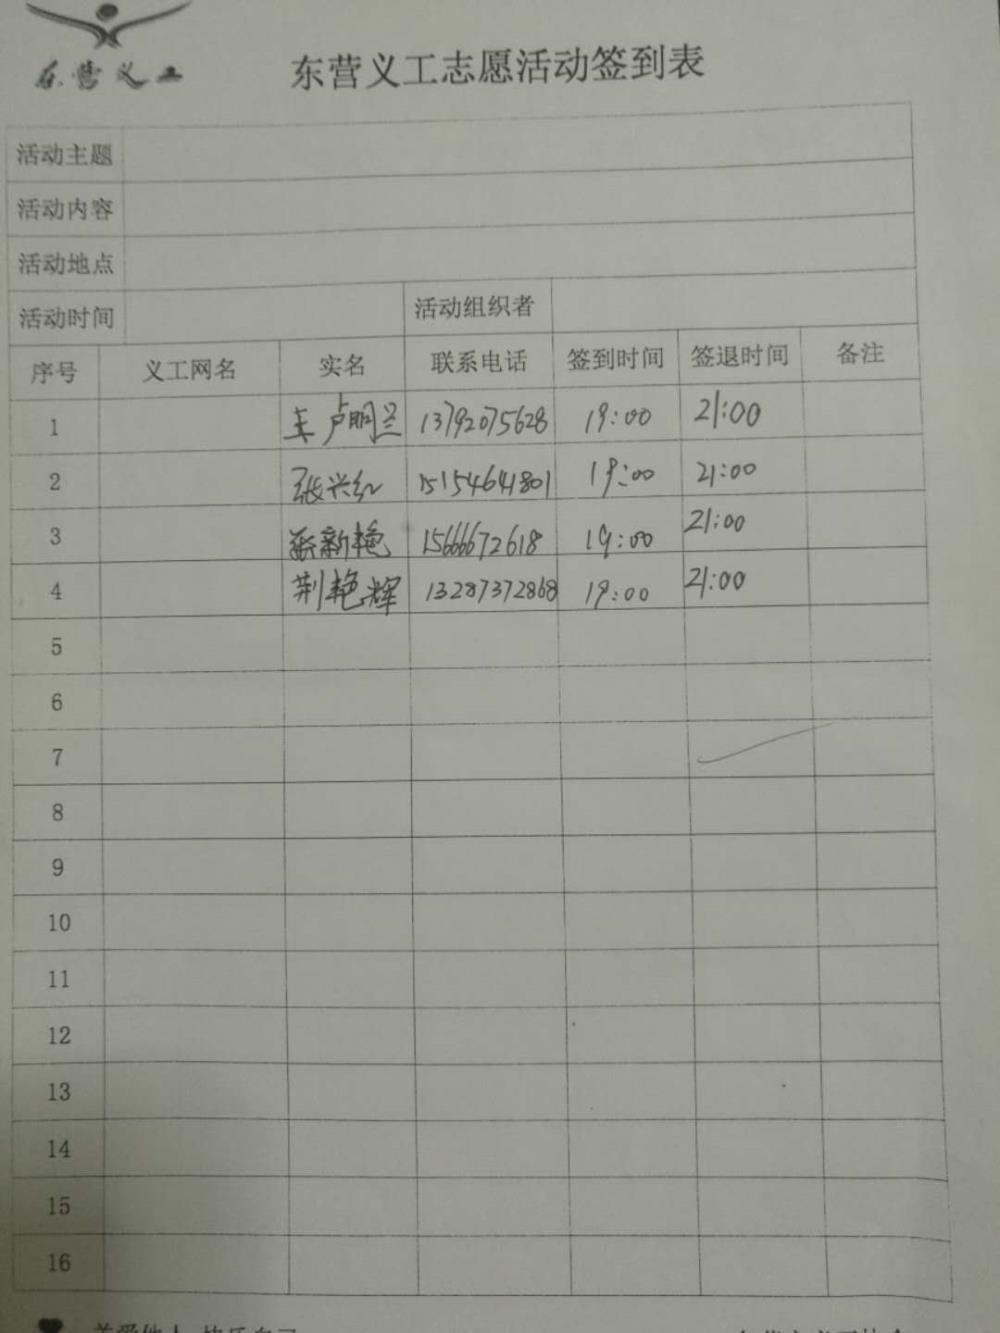 东营义工
东营义工志愿活动签到表
活动主题
活动内容
活动地点
活动时间 活动组织者
序号 义工网名 实名 联系电话 签到时间 签退时间 备注
1 卢明兰 13792075628 19:00 21:00
2 张兴红 15154641801 19:00 21:00
3 新艳 15666672618 19:00 21:00
4 荆艳辉 13287372868 19:00 21:00
5
6
7
8
9
10
11
12
13
14
15
16